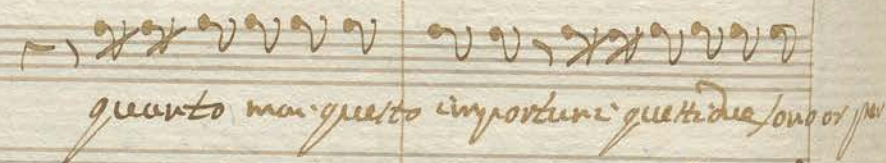 quanto mai questo importuni questi due sono or per